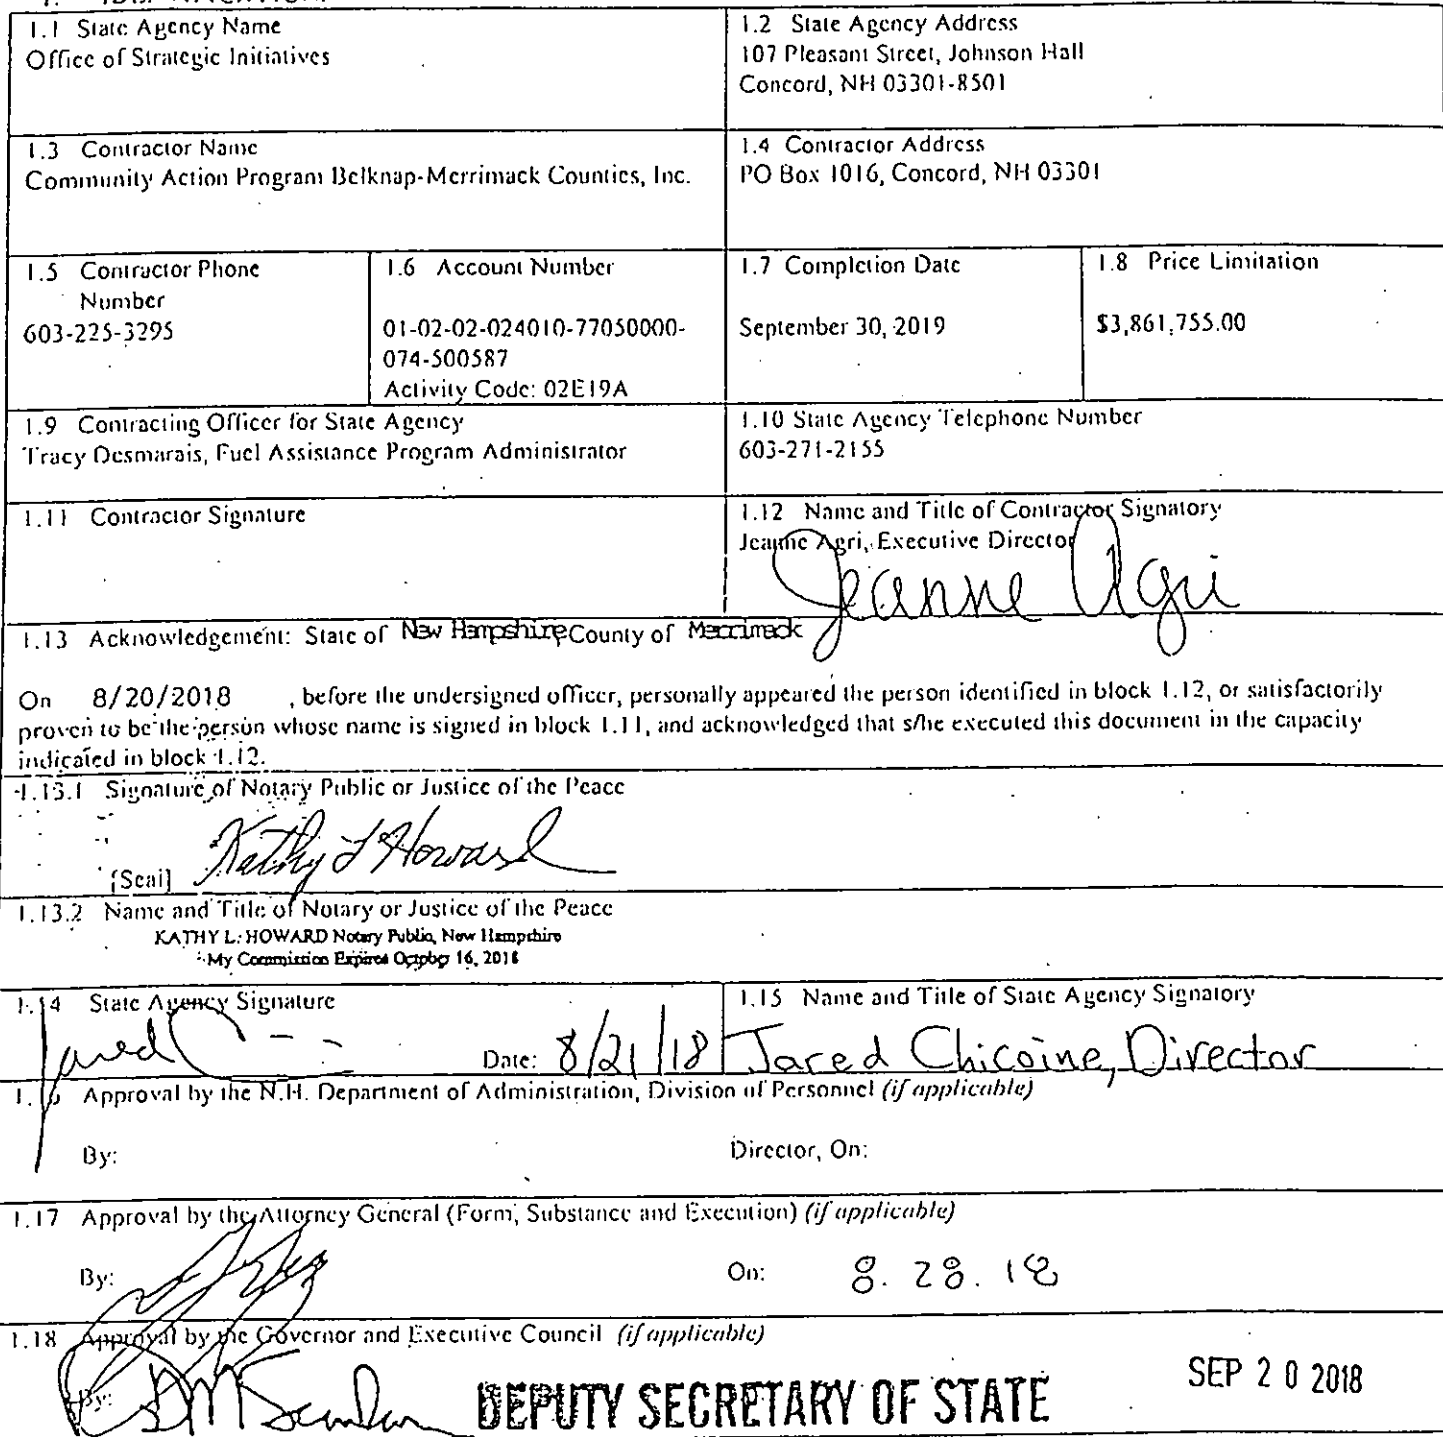 1.1 State Agency Name
Office of Strategic Initiatives
1.2 State Agency Address
107 Pleasant Street, Johnson Hall
Concord, NH 03301-8501
1.3 Contractor Name
Community Action Program Belknap-Merrimack Counties, Inc.
1.4 Contractor Address
PO Box 1016, Concord, NH 03301
1.5 Contractor Phone
Number
603-225-3295
1.6 Account Number
01-02-02-024010-77050000-
074-500587
Activity Code: 02E19A
1.7 Completion Date
September 30, 2019
1.8 Price Limitation
$3,861,755.00
1.9 Contracting Officer for State Agency
Tracy Desmarais, Fuel Assistance Program Administrator
1.10 State Agency Telephone Number
603-271-2155
1.11 Contractor Signature
1.12 Name and Title of Contractor Signatory
Jeanne Agri, Executive Director
Jeanne Agri
1.13 Acknowledgement: State of New Hampshire County of Merrimack
On 8/20/2018 , before the undersigned officer, personally appeared the person identified in block 1.12, or satisfactorily
proven to be the person whose name is signed in block 1.11, and acknowledged that s/he executed this document in the capacity
indicated in block 1.12.
1.13.1 Signature of Notary Public or Justice of the Peace
Kathy L Howard
[Seal]
1.13.2 Name and Title of Notary or Justice of the Peace
KATHY L. HOWARD Notary Public, New Hampshire
My Commission Expires October 16, 2018
1.14 State Agency Signature
Jared
Date: 8/21/18
1.15 Name and Title of State Agency Signatory
Jared Chicoine, Director
1.16 Approval by the N.H. Department of Administration, Division of Personnel (if applicable)
By:
Director, On:
1.17 Approval by the Attorney General (Form, Substance and Execution) (if applicable)
By:
On: 8.28.18
1.18 Approval by the Governor and Executive Council (if applicable)
By:
DEPUTY SECRETARY OF STATE
SEP 20 2018